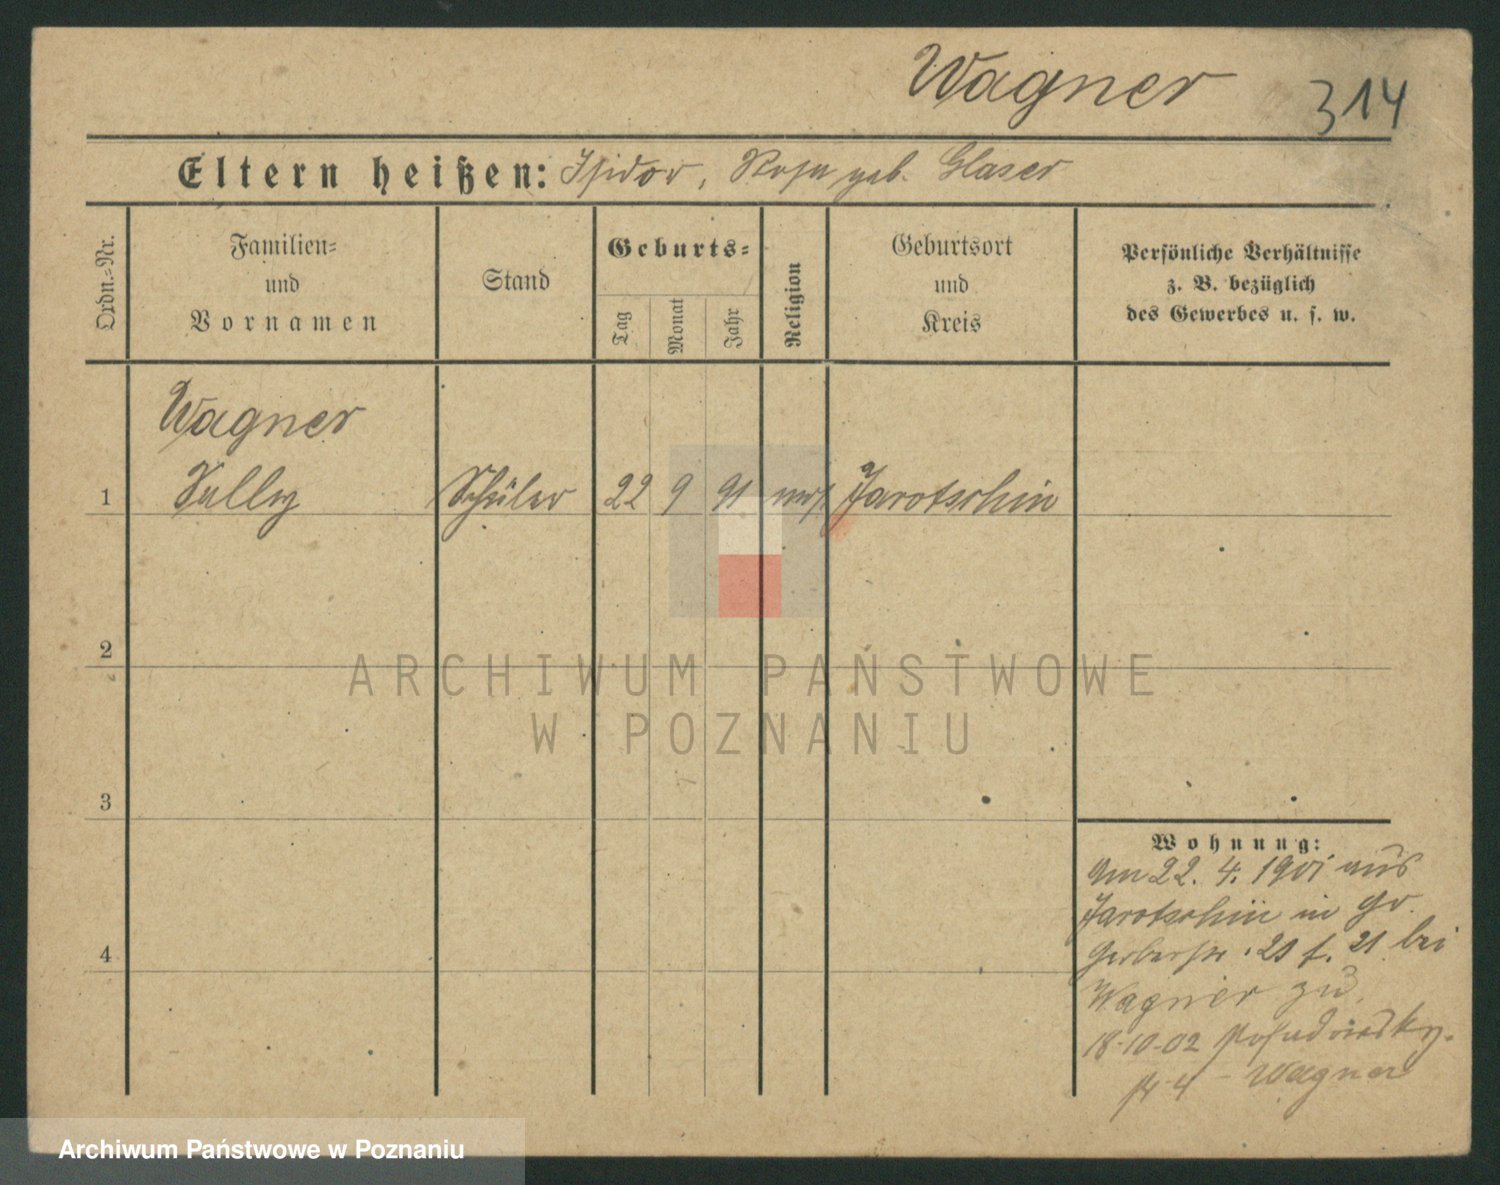 Wagner 314
Eltern heißen: Isidor, Rosa geb. Glaser
Ordn.=Nr.
Familien=
und
Vornamen
Stand
Geburts=
Tag
Monat
Jahr
Religion
Geburtsort
und
Kreis
Persönliche Verhältnisse
z. B. bezüglich
des Gewerbes u. s. w.
Wagner
1 Sally Schüler 22 9 91 mos. Jarotschin
2
3
4
Wohnung:
Am 22. 4. 1901 aus
Jarotschin in Gr.
Gerberstr. 21 bei
Wagner zu
18-10-02
4 - Wagner
ARCHIWUM PAŃSTWOWE
W POZNANIU
Archiwum Państwowe w Poznaniu